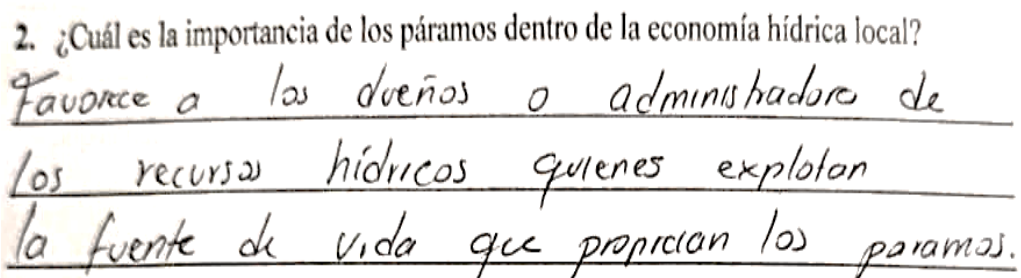 2. ¿Cuál es la importancia de los páramos dentro de la economía hídrica local?
Favorece a los dueños o administradore de
los recursos hídricos quienes explotan
la fuente de vida que propician los paramos.